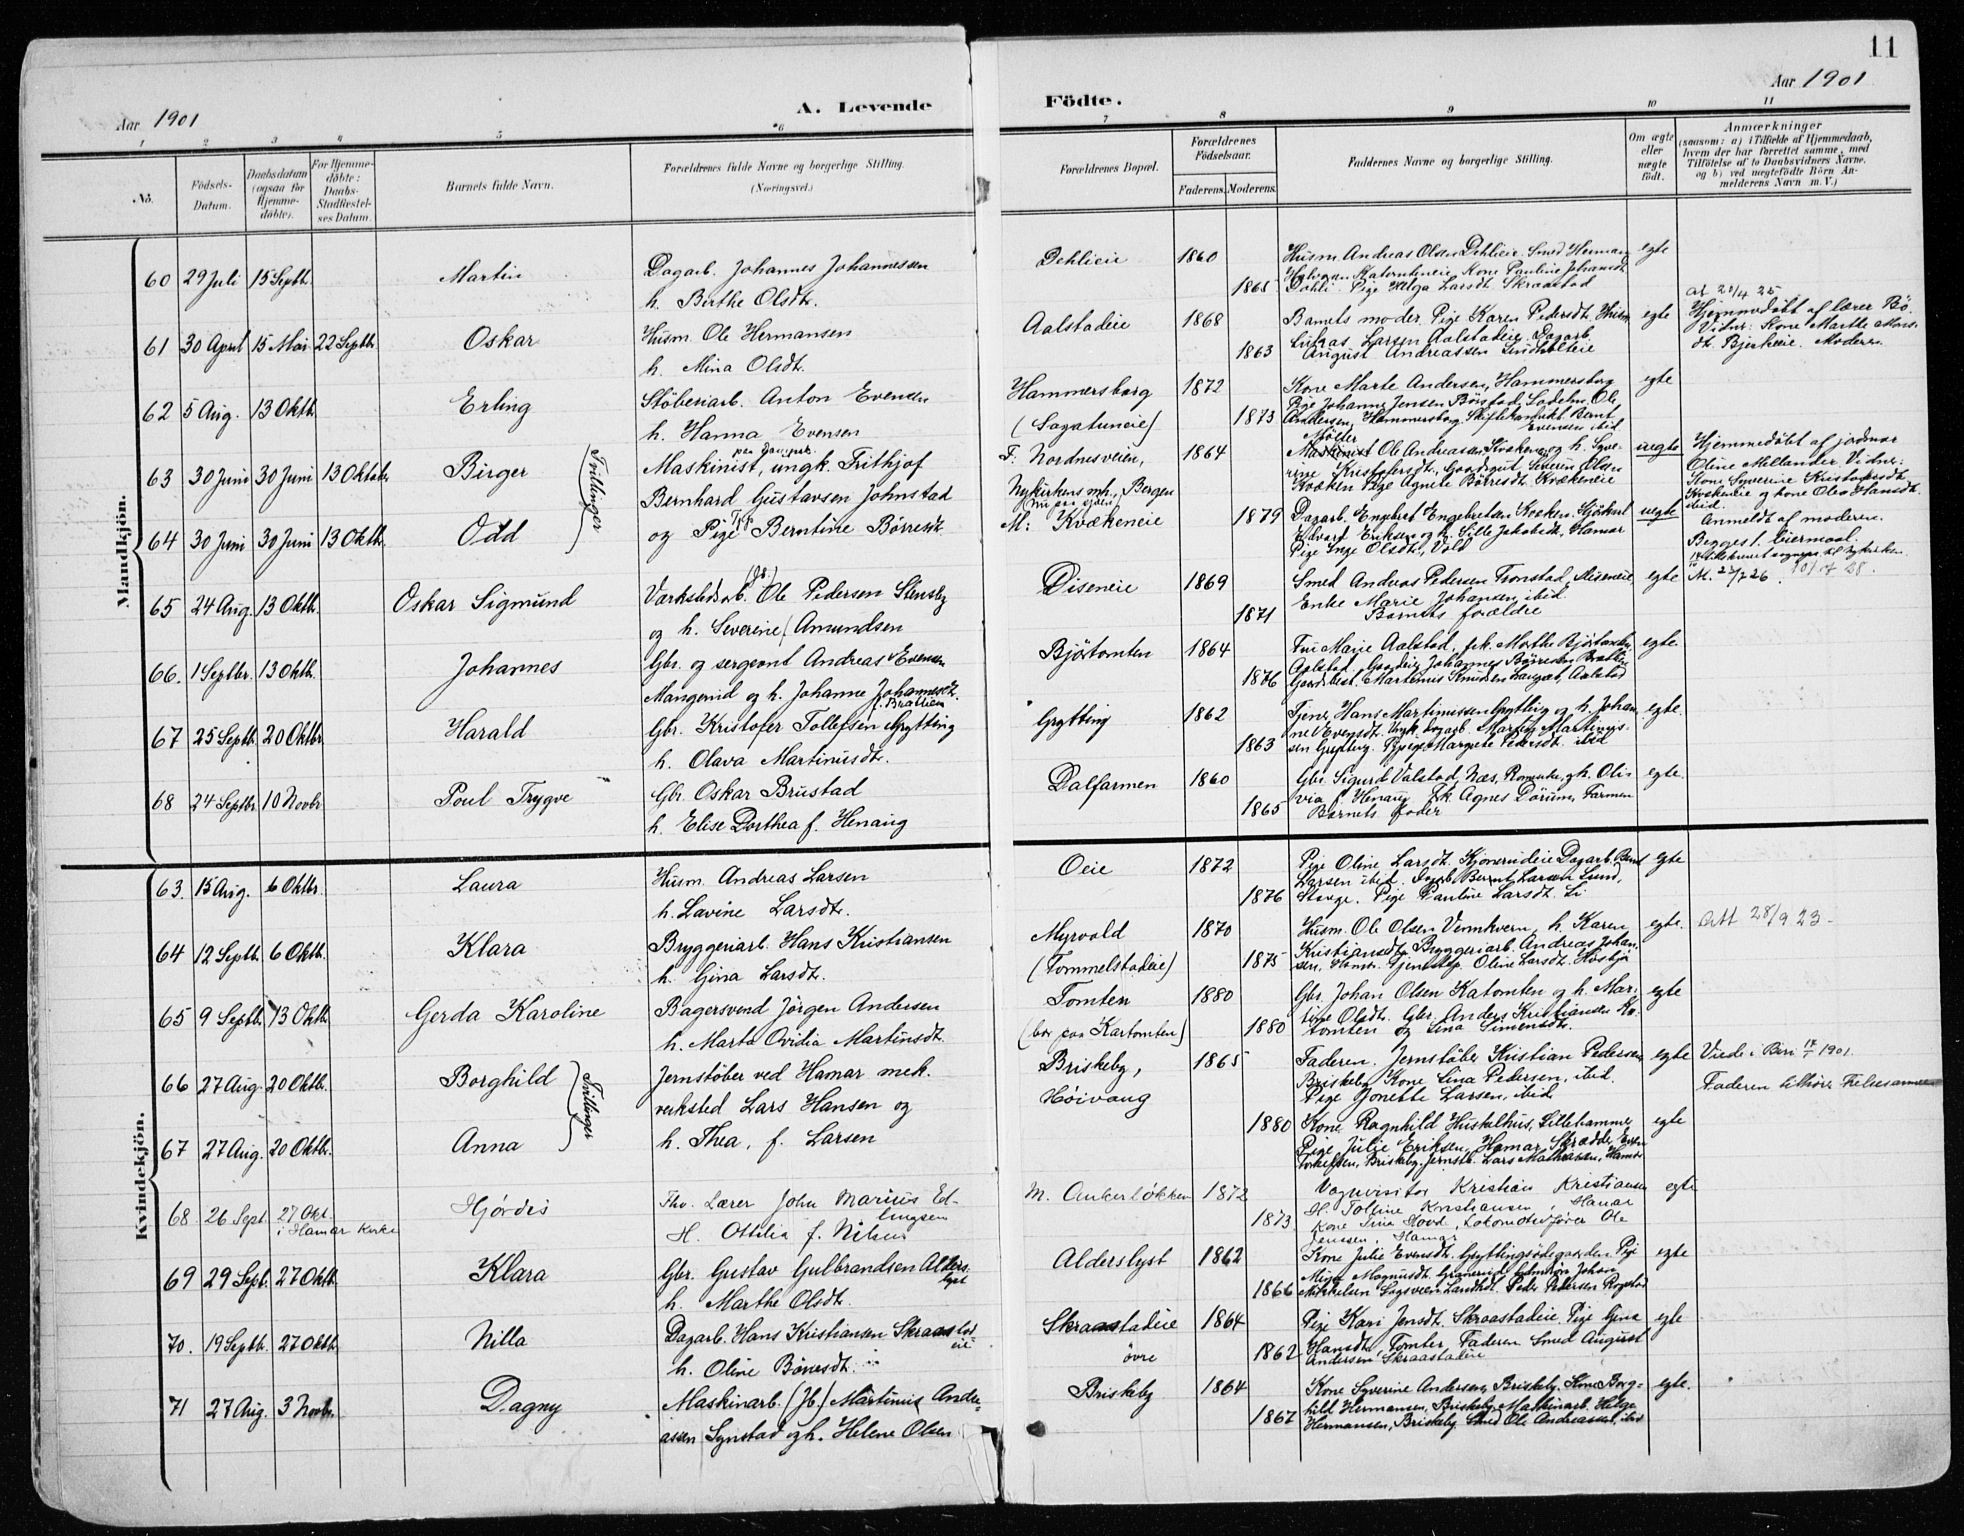 11
Aar 1901 A. Levende Födte. Aar 1901
1 2 3 4 5 6 7 8 9 10 11
No. Födsels-Datum. Daabsdatum (ogsaa for Hjemmedöbte). For Hjemmedöbte: Daabs-Stadfæstelses Datum. Barnets fulde Navn. Forældrenes fulde Navne og borgerlige Stilling. (Næringsvei.) Forældrenes Bopæl. Forældrenes Födselsaar. Faderens. Moderens. Faddernes Navne og borgerlige Stilling. Om ægte eller uægte födt. Anmærkninger (saasom: a) i Tilfælde af Hjemmedaab, hvem der har forrettet samme, med Tilföielse af to Daabsvidners Navne, og b) ved uægtefödte Börn Anmelderens Navn m. V.)
Mandkjön.
60 29 Juli 15 Septb. Martin Dagarb. Johannes Johannessen
h. Berthe Olsdt. Dehlieie 1860 1865 Husm. Andreas Olsen Dehlieie. Smed Herman
Kone Pauline Johansdt.
Döhli. Pige Helga Larsdt. Skraastad egte
61 30 April 15 Mai 22 Septbr. Oskar Husm. Ole Hermansen
h. Mina Olsdt. Aalstadeie 1868 1863 Barnets moder. Pige Karen Pedersdt. Husm.
Lukas Larsen Aalstadeie. Dagarb.
August Andreassen Lindholteie egte
Hjemmedöbt af lærer Bö.
Vidner: Kone Marthe Mons-
dt. Bjerkeeie. Moderen.
62 5 Aug. 13 Oktb. Erling Stöberiarb. Anton Evensen
h. Hanna Evensen Hammersborg
(Sagatuneie) 1872 1873 Kone Marte Andersen, Hammersborg
Pige Johanne Jensen Börstad. Ole
Andersen, Hammersborg. Bernt
Evensen ibid egte
63 30 Juni 30 Juni 13 Oktober Birger Tvillinger Maskinist, ungk. Frithjof
Bernhard Gustavsen Johnstad F. Nordnesveien,
Nykirkens mh., Bergen 1864 Ole Andreasen Kvækeneie og h. Syve-
rine Kristofersdt., Gaardsgut Severin Olsen
Kvæken Pige Agnete Börresdt. Kvækeneie uegte
Hjemmedöbt af jodmor
Oline Mellander Vidner:
Kone Syverine Kristofersdt.
Kvækeneie og kone Olea Hansdt.
ibid.
64 30 Juni 30 Juni 13 Oktb. Odd og Pige Berntine Börresdt. M: Kvækeneie 1879 Dagarb. Engebret Engebretsen Kvæken.
Edvard Eriksen og h. Sille Jakobsdt., Hamar
Pige Inge Olsdt., Vold uegte
Anmeldt af moderen.
Begges 1. leiermaal.
65 24 Aug. 13 Oktb. Oskar Sigmund Værkstedsarb. (Jb.) Ole Pedersen Stensby
og h. Severine Amundsen Diseneie 1869 1871 Smed Andreas Pedersen Tronstad, Diseneie
Enke Marie Johansen, ibid.
Barnets forældre egte
66. 1 Septbr. 13 Oktb. Johannes Gbr. og sergeant Andreas Evensen
Mangerud og h. Johanne Johannesdt.
f. Brattlien Björtomten 1864 1876 Fru Marie Aalstad, frk. Marthe Björtomten
Aalstad. Johannes Börresen Bratlien
Gaardbest. Martinus Knudsen Aalstad egte.
67 25 Septb. 20 Oktbr. Harald Gbr. Kristofer Tollefsen Grytting
h. Olava Martinusdt. Grytting 1862 1863 Tjener Hans Martinussen Grytting og h. Johan-
ne Evensdt. Ungk. Dagarb. Martin Martinus-
sen Grytting. Pige Margrete Pedersdt. ibid egte.
68 24 Septbr. 10 Novbr. Poul Trygve Gbr. Oskar Brustad
h. Elise Dorthea f. Henaug Dalfarmen 1860 1865 Gbr. Sigurd Valstad, Næs, Romerike, og h. Oli-
via f. Henaug. frk. Agnes Dörum, Farmen
Barnets fader egte.
Kvindekjön.
63. 15 Aug. 6 Oktbr. Laura Husm. Andreas Larsen
h. Lavine Larsdt. Oeie 1872 1876 Pige Oline Larsdt. Kjonerudeie Dagarb. Bernt
Larsen ibid. Dagarb. Bernt Larsen Lund,
Stange. Pige Pauline Larsdt. Li egte
64 12 Septb. 6 Oktb. Klara Bryggeriarb. Hans Kristiansen
h. Gina Larsdt. Myrvold
(Tommelstadeie) 1870 1875 Husm. Ole Olsen Vennkvern, h. Karen
Kristiansdt. Bryggeriarb. Andreas Johan-
sen, Hamar. Tjenestep. Oline Larsdt. Hosbjo egte. Att 28/9 23
65 9 Septb. 13 Oktb. Gerda Karoline Bagersvend Jörgen Andersen
h. Marta Ovidia Martinsdt. Tomten
(bor paa Kartomten) 1880 1880 Gbr. Johan Olsen Katomten og h. Mar-
tine Olsdt. Gbr. Anders Kristiansen Ka-
tomten og Lina Simensdt. egte
66 27 Aug. 20 Oktbr. Borghild Tvillinger Jernstöber ved Hamar mek.
verksted Lars Hansen og Briskeby,
Höivang 1865 Faderen. Jernstöber Kristian Pedersen
Briskeby. Kone Lina Pedersen, ibid.
Pige Jonette Larsen, ibid. egte Viede i Biri 1901.
Faderen tilhörer Frelsesarmeen
67 27 Aug. 20 Oktbr. Anna h. Thea, f. Larsen 1880 Kone Ragnhild Hustulhus, Lillehammer
Pige Julie Eriksen, Hamar, Skrædder Evsen
Torkelsen, Briskeby. Jernstb. Lars Mathiasen, Hamar egte
68 26 Sept. 27 Okt
i Hamar Kirke Hjördis Thv. Lærer John Marius Ed-
lingsen
H. Ottilia f. Nilsen M. Ankerlökken 1872 1873 Vognvisitör Kristian Kristiansen
H. Tolline Kristiansen, Hamar
Kone Tina Hovd, Lokomotivförer Ole
Jenssen, Hamar egte
69 29 Sept. 27 Oktb. Klara Gbr. Gustav Gulbrandsen Alders-
lyst
h. Marthe Olsdt. Alderslyst 1862 1866 Kone Julie Evensdt. Gryttingsödegaarden. Pige
Mina Magnusdt. Granerud. Johan
Mikkelsen Sagsveen. Peder Pedersen Rogstad egte
70. 19 Septb. 27 Oktb. Nilla Dagarb. Hans Kristiansen Skraastad-
eie
h. Oline Börresdt. Skraastadeie
övre 1864 1862 Pige Kari Jensdt. Skraastadeie. Pige Gina
Hansdt. Tomter. Faderen. Smed August
Andersen Skraastadeie egte
71 27 Aug. 3 Novbr. Dagny Maskinarb. (Jb.) Martinius Andre-
assen Synstad og h. Helene Olsen Briskeby 1864 1867 Kone Syverine Andersen, Briskeby. Kone Borg-
hild Hermansen, Briskeby. Maskinarb. Helge
Hermansen, Briskeby. Smed Ole Andreassen, ibid egte.